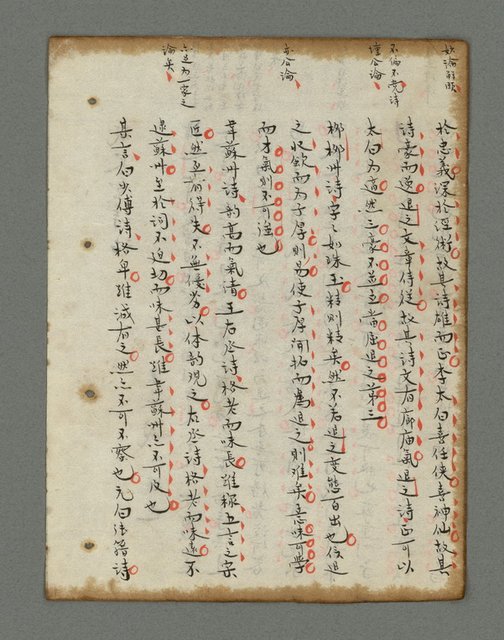 於忠義深於經術故其詩雄而正李太白喜任俠喜神仙故其
詩豪而逸退之文章侍從故其詩文有廊廟氣退之詩正可以
太白为適然二豪不並立當屈退之第三
柳柳州詩字〻如珠玉精則精矣然不若退之變態百出也使退
之收斂而为子厚則易使子厚開拓而為退之則難矣意味可學
而才氣則不可強也
韋蘇州詩韵高而氣清王右丞詩格老而味長雖稱五言之宗
匠然互有得失不無優劣以体韵观之右丞詩格老而味遠不
逮蘇州至於詞不迫切而味甚長雖韋蘇州亦不可及也
某言白少傅詩格卑雖誠有之然亦不可不察也元白張籍詩
妙論
不偏不党詩
壇公論
亦公論
亦足为一家之
論矣